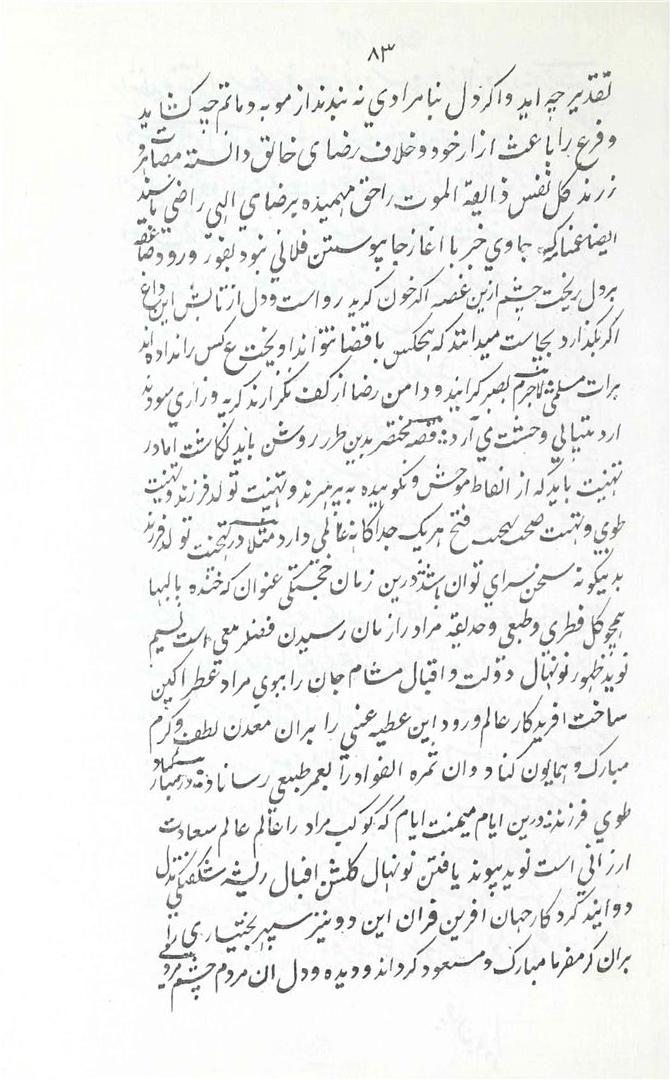 ٨٣
تقدیر چه اید واکر دل بنامرادي نه بندند از مویه و ماتم چه کشاید
و فرع را باعث ازار خود و خلاف رضای خالق دانسته
زرند کل نفس ذایقة الموت را حق فهمیده برضاي الهي راضي باشند
ایضا غمناکیه حاوي خبر با اغاز جاپوستن فلاني نبود بفور ورود صاعقه
بر دل ریخت چشم ازین غصه اکر خون کرید رواست و دل از تابش این داغ
اکر بکدازد بجاست میدانند که هیچکس با قضا نتواند اویخت ع کس را نداده اند
برات مسلمي لاجرم بصبر کرایند و دامن رضا از کف نکزارند کریه و زاري سودند
ارد بیتابي وحشت مي آرد قصه مختصر بدین طرز روشن باید نکاشت اما در
تهنیت باید که از الفاظ موحش و نکوهیده به پرهیزند و تهنیت تولد فرزند و تهنیت
طوي و تهنیت صحت تهنیت فتح هریک جداکانه عالمي دارد مثلا در تهنیت تولد فرزند
بدینکونه سخن سراي توان شد درین زمان خجستکي عنوان که خنده بالبها
همچو کل فطري و طبعي و حدیقه مراد را زمان رسیدن فصل است نسیم
نوید ظهور نونهال دولت و اقبال مشام جان را ببوي مراد عطر اکین
ساخت افریدکار عالم ورود این عطیه غیبي را بران معدن لطف و کرم
مبارک و همایون کناد و ان ثمره الفواد را بعمر طبیعي رساناد در مبارکباد
طوي فرزند درین ایام میمنت ایام که کوکب مراد را عالم عالم سعادت
ارزاني است نوید پیوند یافتن نونهال کلشن اقبال ریشه شکفتکي در دل
دوانید کردکار جهان افرین قران این دو نیر سپهر بختیاري را
بران کرمفرما مبارک و مسعود کرداند و دیده و دل ان مردم چشم